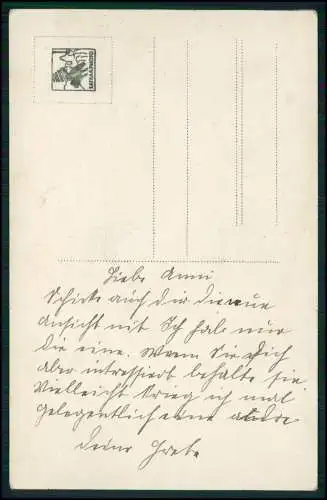 Liebe Anni
Schicke auch dir die neue
Ansicht mit Ich hab nur
die eine. Wenn Sie Dich
aber intressiert behalte sie.
Vielleicht krieg ich mal
gelegentlich eine andre
Deine Grete